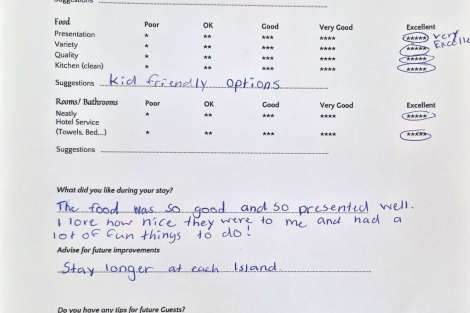 Suggestions
Food Poor OK Good Very Good Excellent
Presentation * ** *** **** ***** very
Variety * ** *** **** ***** Excelle
Quality * ** *** **** *****
Kitchen (clean) * ** *** **** *****
Suggestions Kid friendly options
Rooms/ Bathrooms Poor OK Good Very Good Excellent
Neatly * ** *** **** *****
Hotel Service
(Towels, Bed...) * ** *** **** *****
Suggestions
What did you like during your stay?
The food was so good and so presented well.
I love how nice they were to me and had a
lot of fun things to do!
Advise for future improvements
Stay longer at each Island.
Do you have any tips for future Guests?